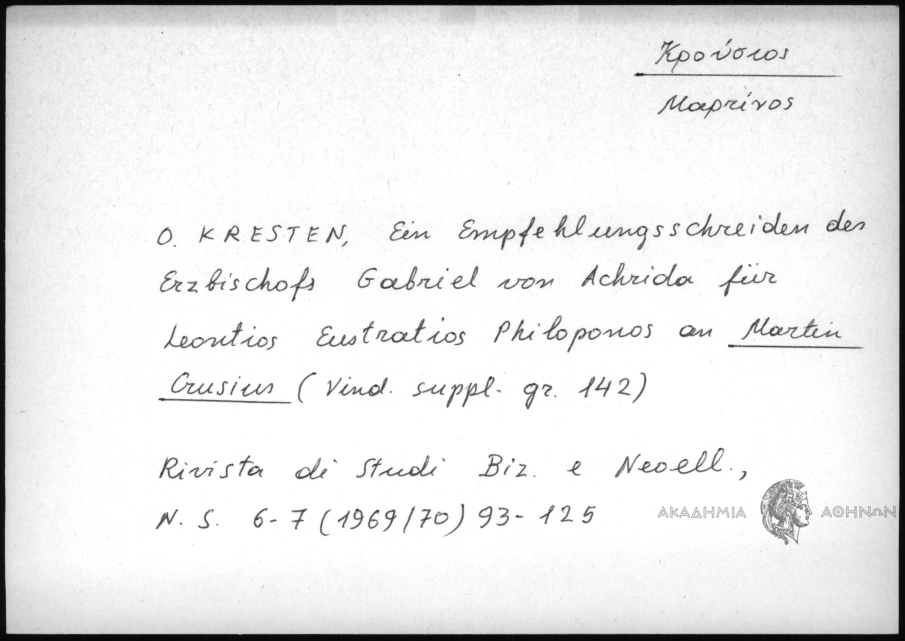 Κρούσιος
Μαρτίνος
O. KRESTEN, Ein Empfehlungsschreiden des
Erzbischofs Gabriel von Achrida für
Leontios Eustratios Philoponos an Martin
Crusius (Vind. suppl. gr. 142)
Rivista di Studi Biz. e Neoell.,
N. S. 6-7 (1969/70) 93-125
ΑΚΑΔΗΜΙΑ ΑΘΗΝΩΝ